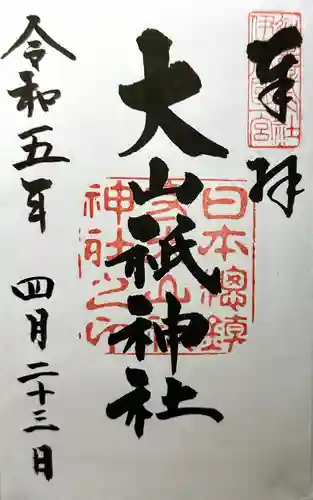 奉拝
大山祇神社
日本總鎮
大山祇
神社之印
令和五年 四月二十三日